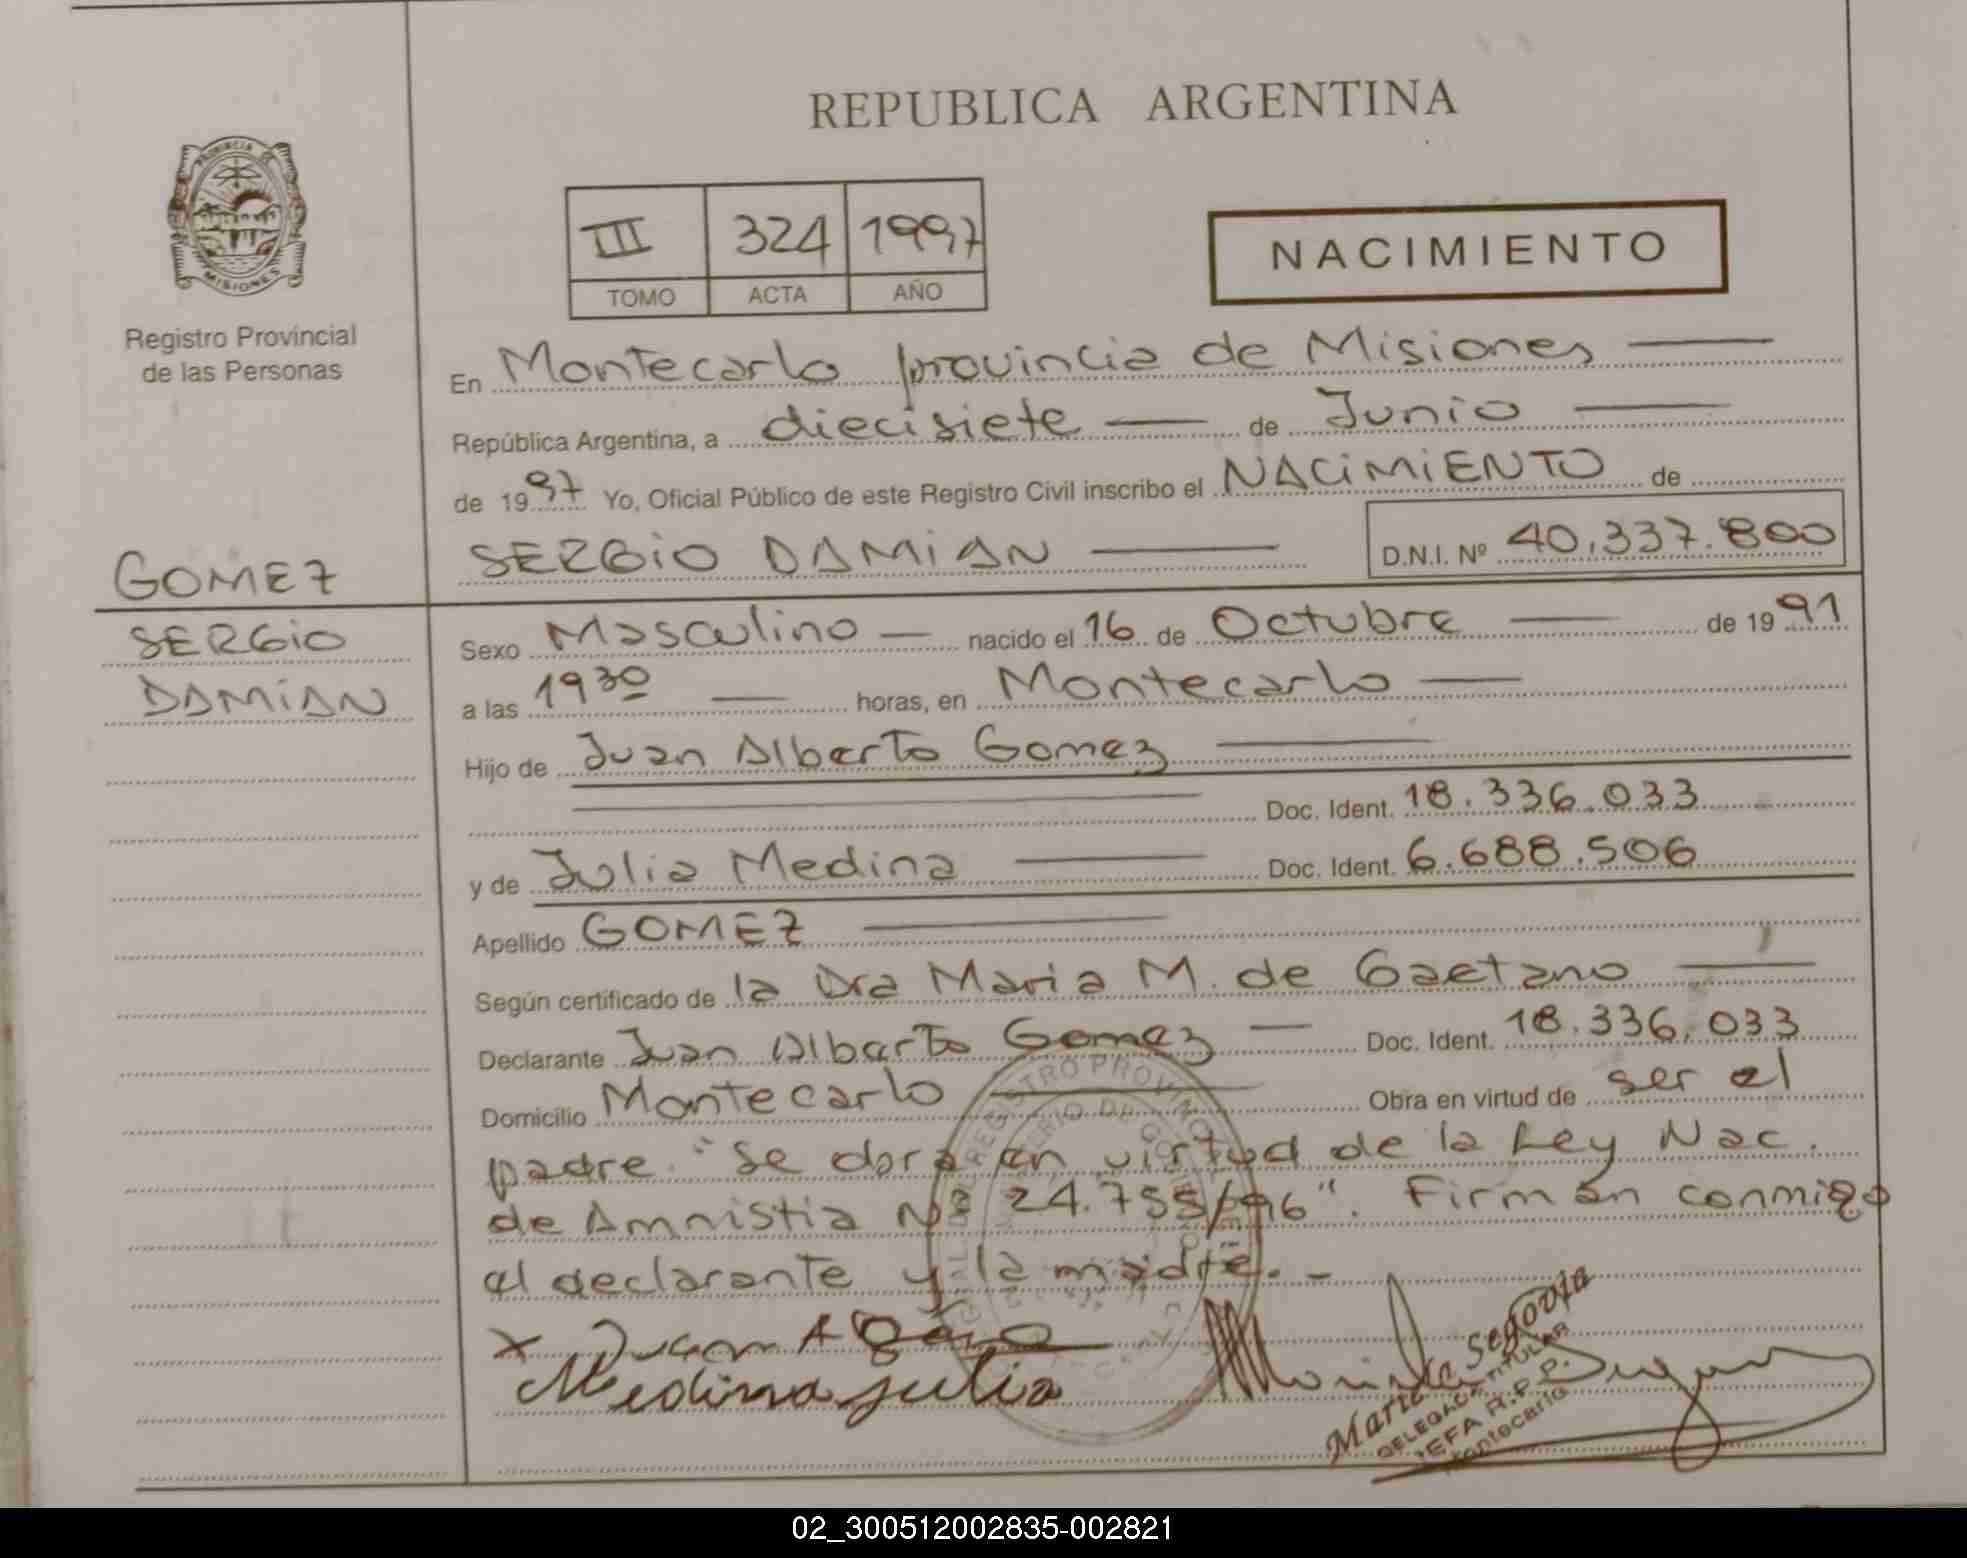 REPUBLICA ARGENTINA
PROVINCIA DE
MISIONES
Registro Provincial
de las Personas
III 324 1997
TOMO ACTA AÑO
NACIMIENTO
En Montecarlo provincia de Misiones
República Argentina, a diecisiete de Junio
de 1997 Yo, Oficial Público de este Registro Civil inscribo el NACIMIENTO de
SERGIO DAMIAN D.N.I. Nº 40.337.800
GOMEZ
SERGIO
DAMIAN
Sexo Masculino nacido el 16 de Octubre de 1991
a las 1930 horas, en Montecarlo
Hijo de Juan Alberto Gomez
Doc. Ident. 18.336.033
y de Julia Medina Doc. Ident. 6.688.506
Apellido GOMEZ
Según certificado de la Dra Maria M. de Gaetano
Declarante Juan Alberto Gomez Doc. Ident. 18.336.033
Domicilio Montecarlo Obra en virtud de ser el
padre. "Se dora en virtud de la Ley Nac.
de Amnistia Nº 24.755/96". Firman conmigo
el declarante y la madre.-
x Juan A
Medina Julia
REGISTRO PROVINCIAL
Maria Segovia
DELEGADA TITULAR
JEFA R.P.P.
Montecarlo
02_300512002835-002821